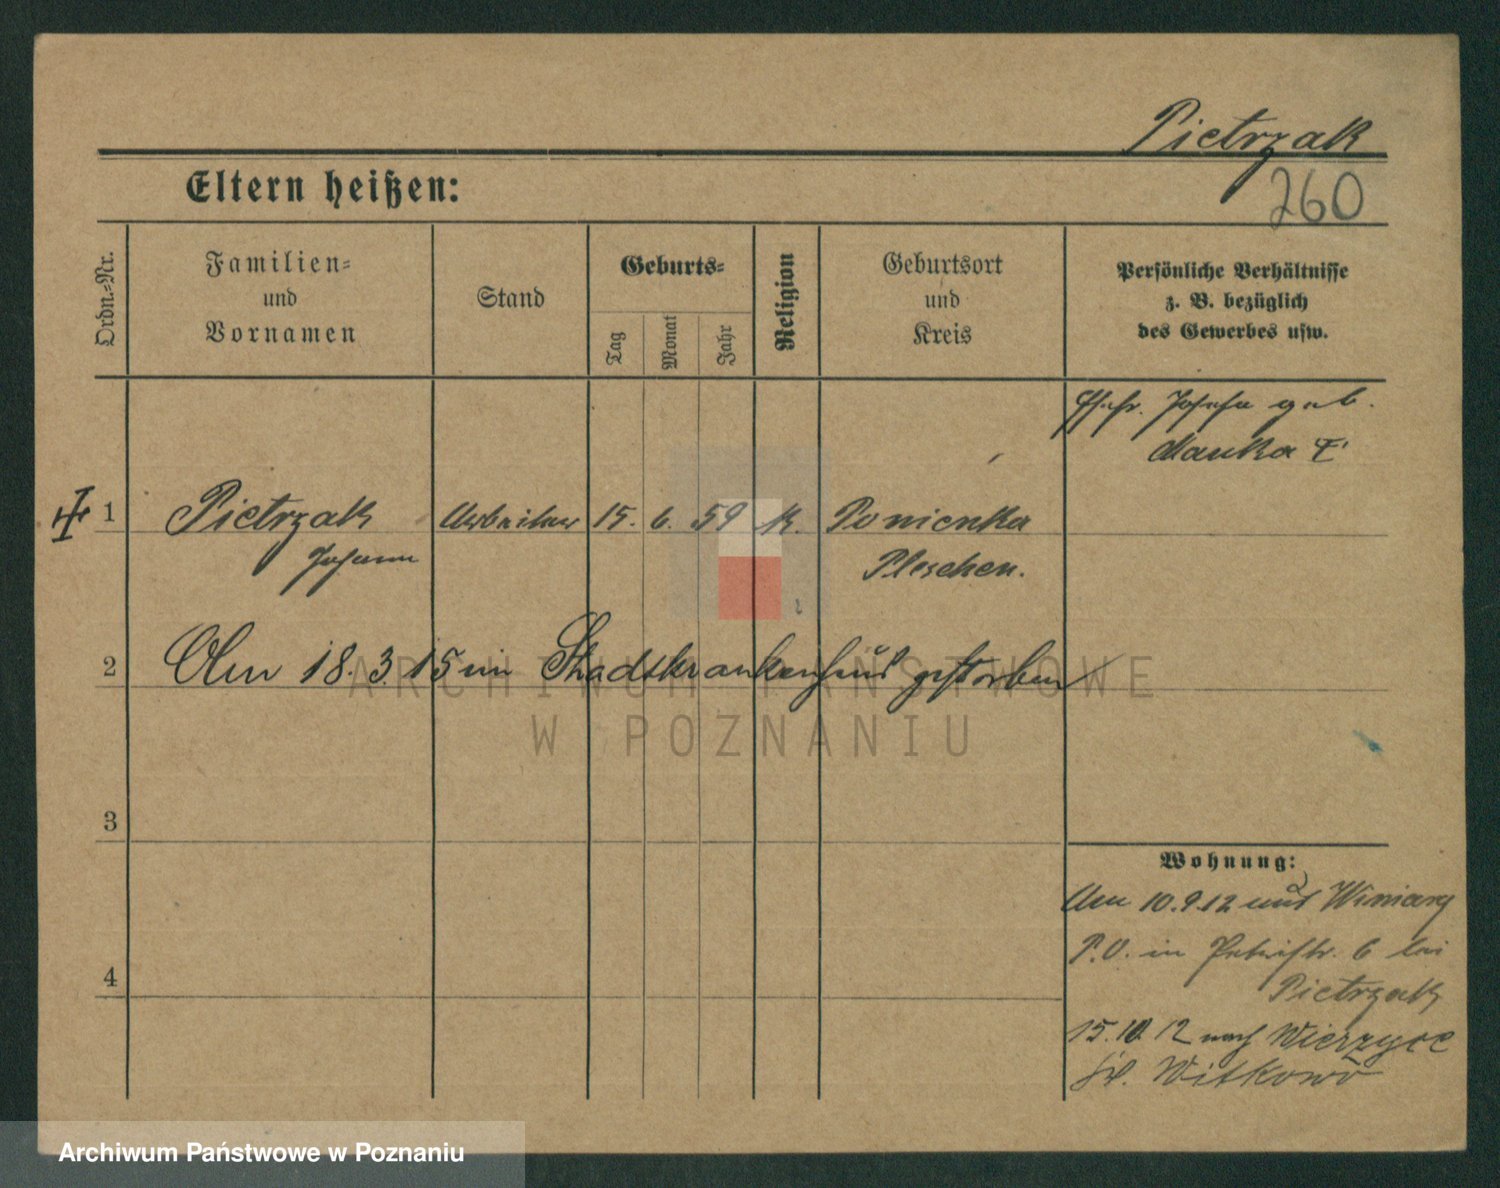 Pietrzak
260
Eltern heißen:
Ordn.-Nr.
Familien-
und
Vornamen
Stand
Geburts-
Tag
Monat
Jahr
Religion
Geburtsort
und
Kreis
Persönliche Verhältnisse
z. B. bezüglich
des Gewerbes usw.
Ehefr. Josefa geb.
Manka
1 Pietrzak Arbeiter 15. 6. 59 K. Ponienka
Johann Pleschen.
2 Am 18.3.15 im Stadtkrankenhaus gestorben
3
4
Wohnung:
Am 10.9.12 aus Winiary
P.O. in Petristr. 6 bei
Pietrzak
15.10.12 nach Wierzyce
Witkowo
ARCHIWUM PAŃSTWOWE
W POZNANIU
Archiwum Państwowe w Poznaniu